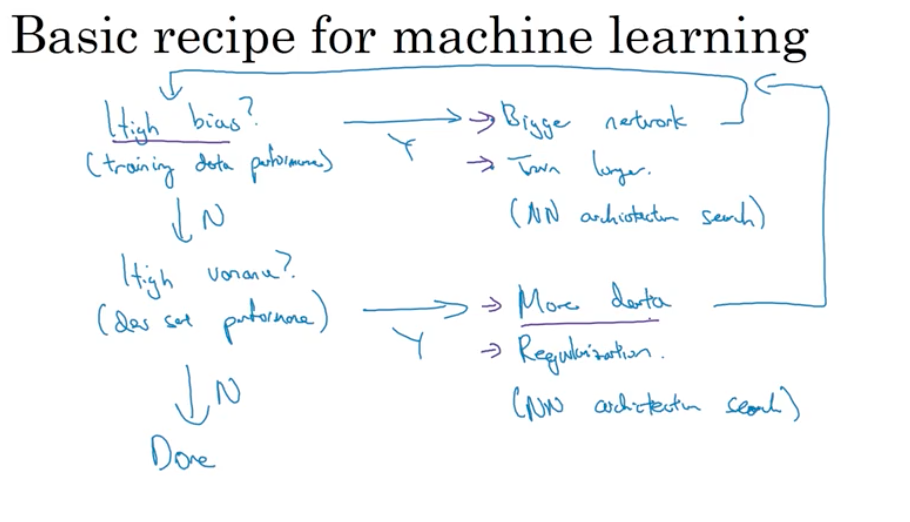 Basic recipe for machine learning
High bias?
Y
Bigge network
(training data performance)
Train longer.
N
(NN architecture search)
High variance?
(dev set performance)
Y
More data
Regularization.
N
(NN architecture search)
Done